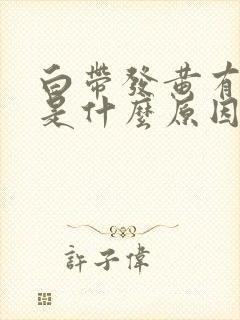 白帶發黄有
是什麼原因
許子偉